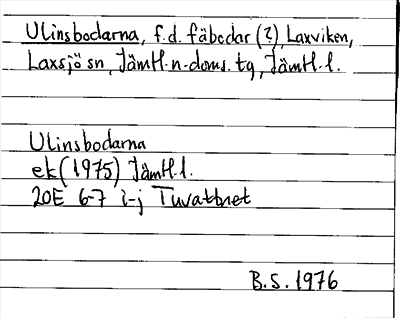 Ulinsbodarna, f.d. fäbodar (?), Laxviken,
Laxsjö sn, Jämtl. n. doms. tg, Jämtl. l.
Ulinsbodarna
ek (1975) Jämtl. l.
20E 6-7 i-j Tuvattnet
B.S. 1976